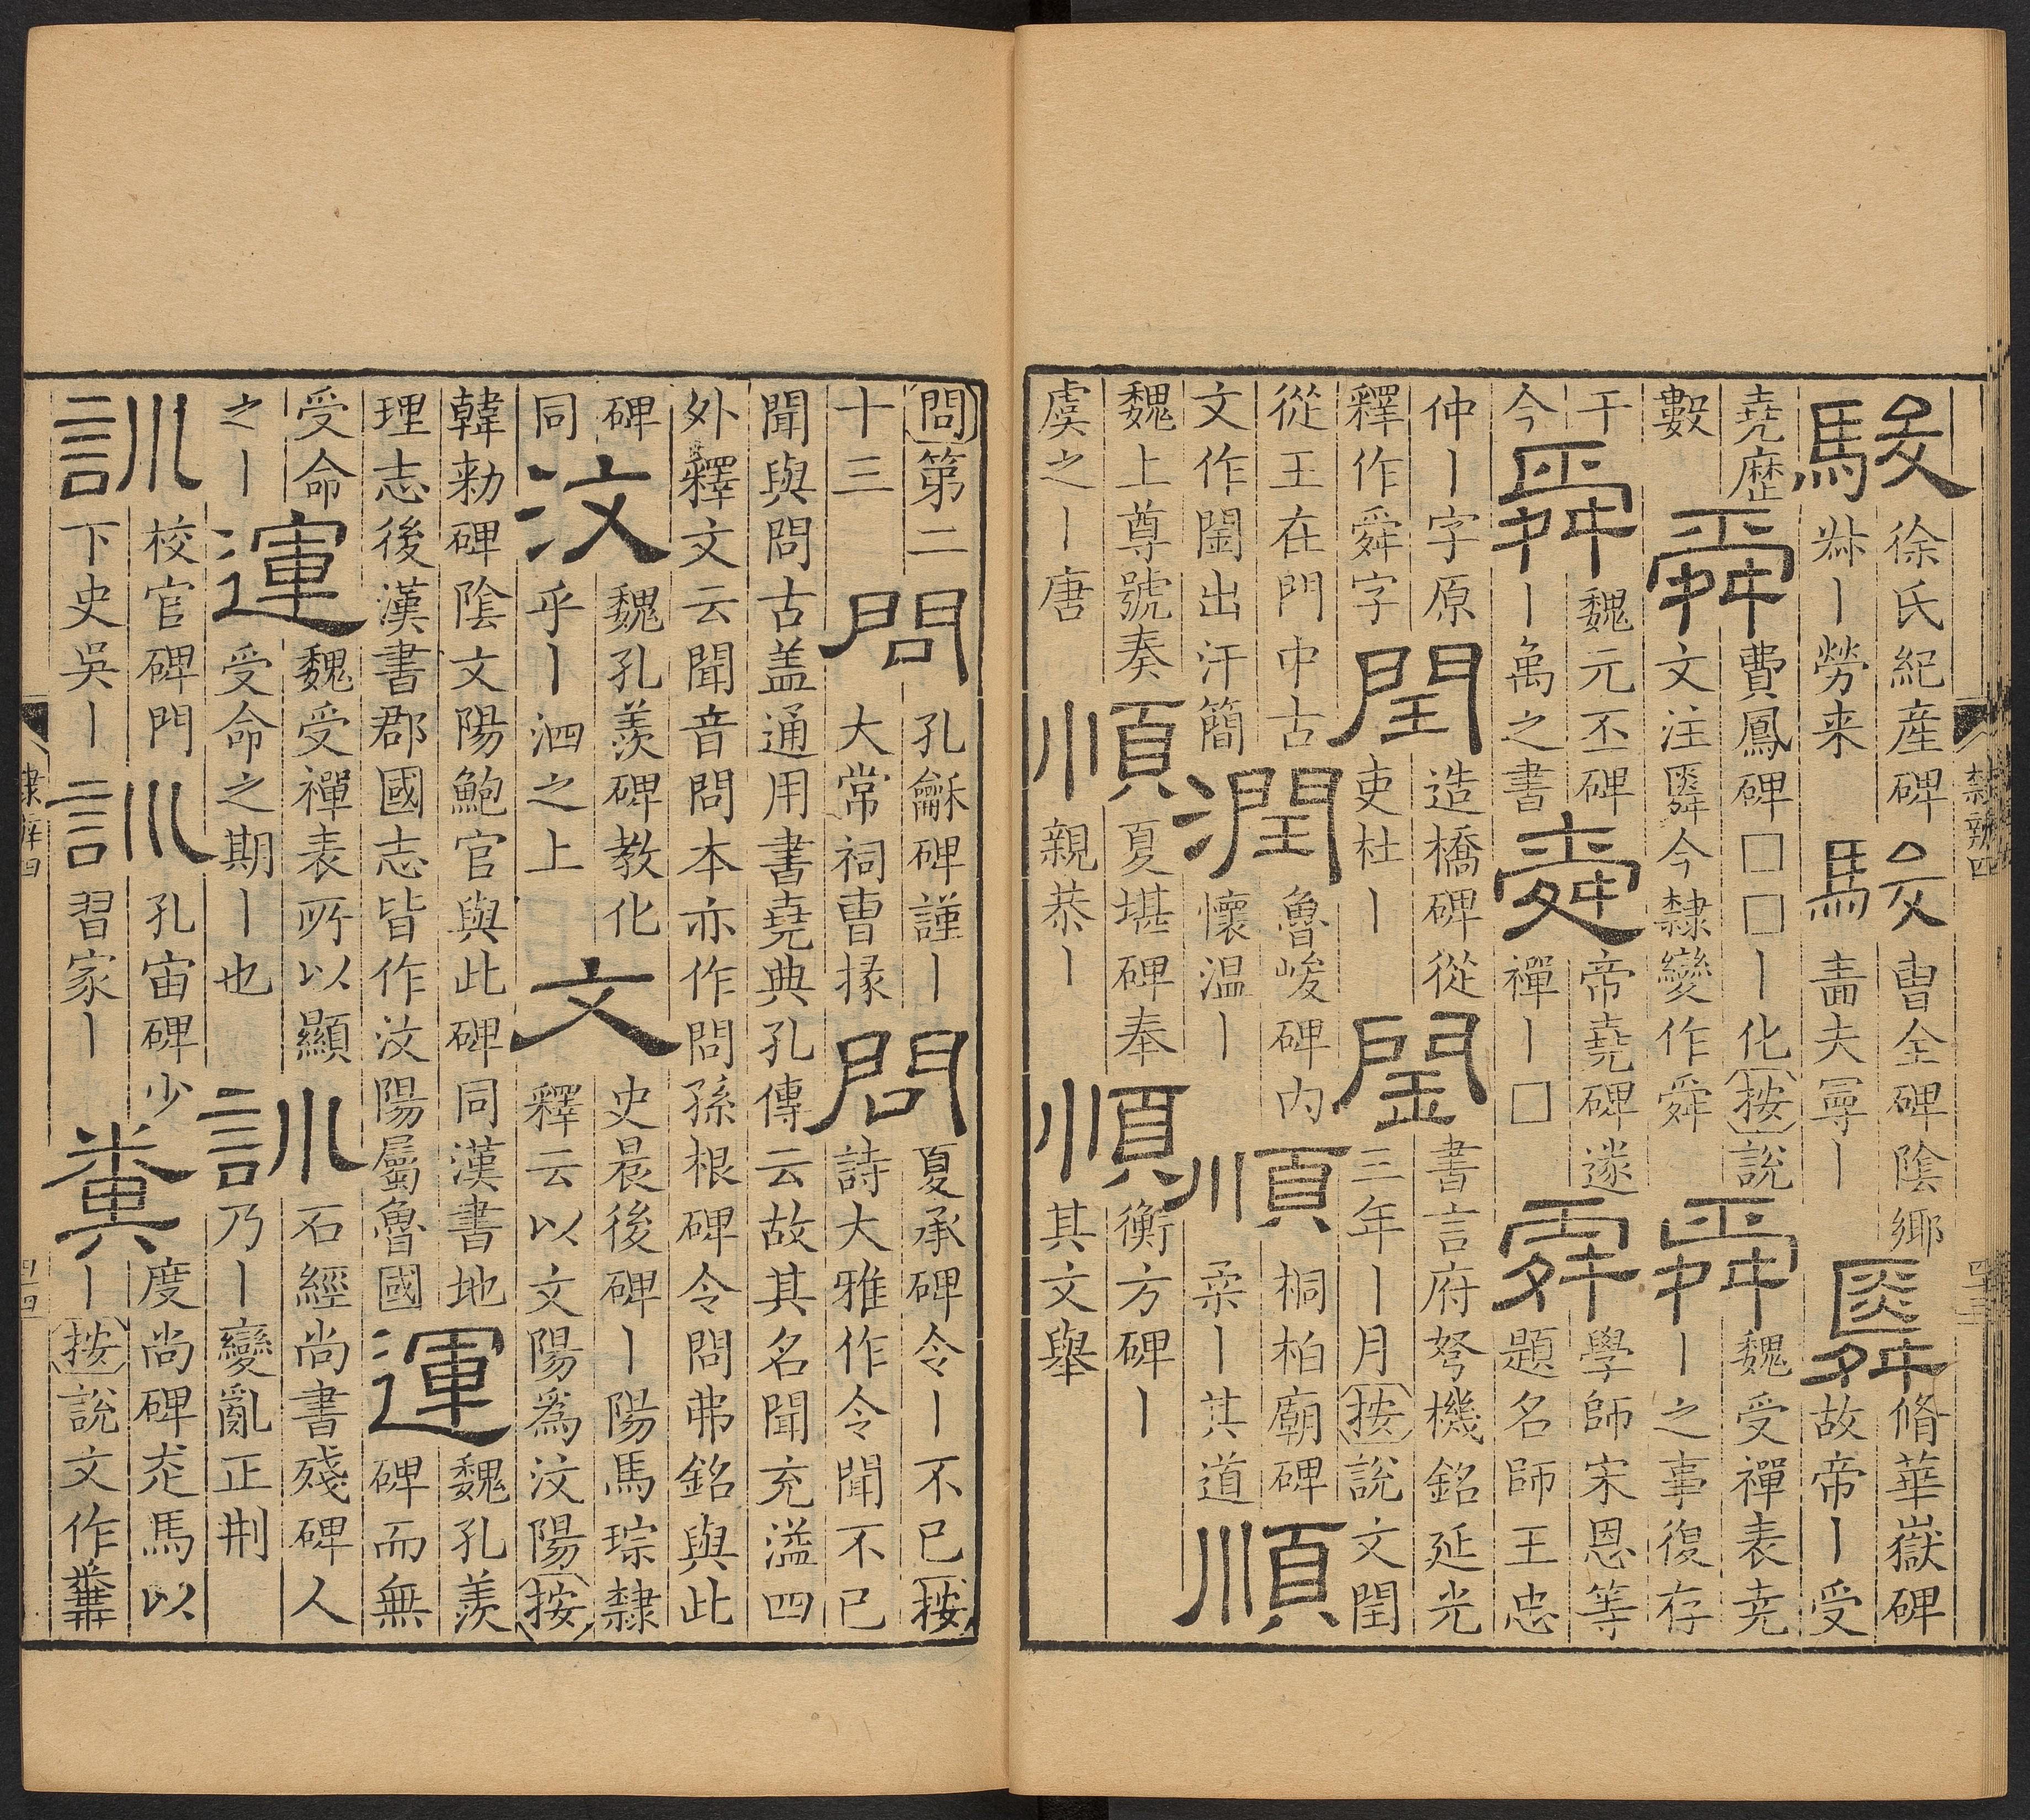 駿
徐氏紀產碑
丨勞来
駿
曺全碑陰鄉
嗇夫丨
脩華嶽碑
故帝丨受
堯歴
數
舜
費鳳碑□□丨化按說
文注今隸變作舜
舜
魏受禪表堯
丨之事復存
于
今
舜
魏元丕碑
丨禹之書
舜
帝堯碑遂
禪丨□
舜
學師宋恩等
題名師王忠
仲丨字原
釋作舜字
閏
造橋碑從
吏杜丨
閏
書言府弩機銘延光
三年丨月按說文閏
從王在門中古
文作閠出汗簡
潤
魯峻碑内
懷温丨
順
桐柏廟碑
柔丨其道
順
魏上尊號奏
虞之丨唐
順
夏堪碑奉
親恭丨
順
衡方碑丨
其文舉
隸辨四
四十三
問第二
十三
問
孔龢碑謹丨
大常祠曺掾
問
夏承碑令丨不已按
詩大雅作令聞不已
聞與問古盖通用書堯典孔傳云故其名聞充溢四
外釋文云聞音問本亦作問孫根碑令問弗銘與此
碑
同
汶
魏孔羨碑教化
乎丨泗之上
文
史晨後碑丨陽馬琮隸
釋云以文陽爲汶陽按
韓勑碑陰文陽鮑官與此碑同漢書地
理志後漢書郡國志皆作汶陽屬魯國
運
魏孔羨
碑而無
受命
之丨
運
魏受禪表所以顯
受命之期丨也
訓
石經尚書殘碑人
乃丨變亂正刑
訓
校官碑門
下史吳丨
訓
孔宙碑少
習家丨
糞
度尚碑馬以
丨按說文作糞